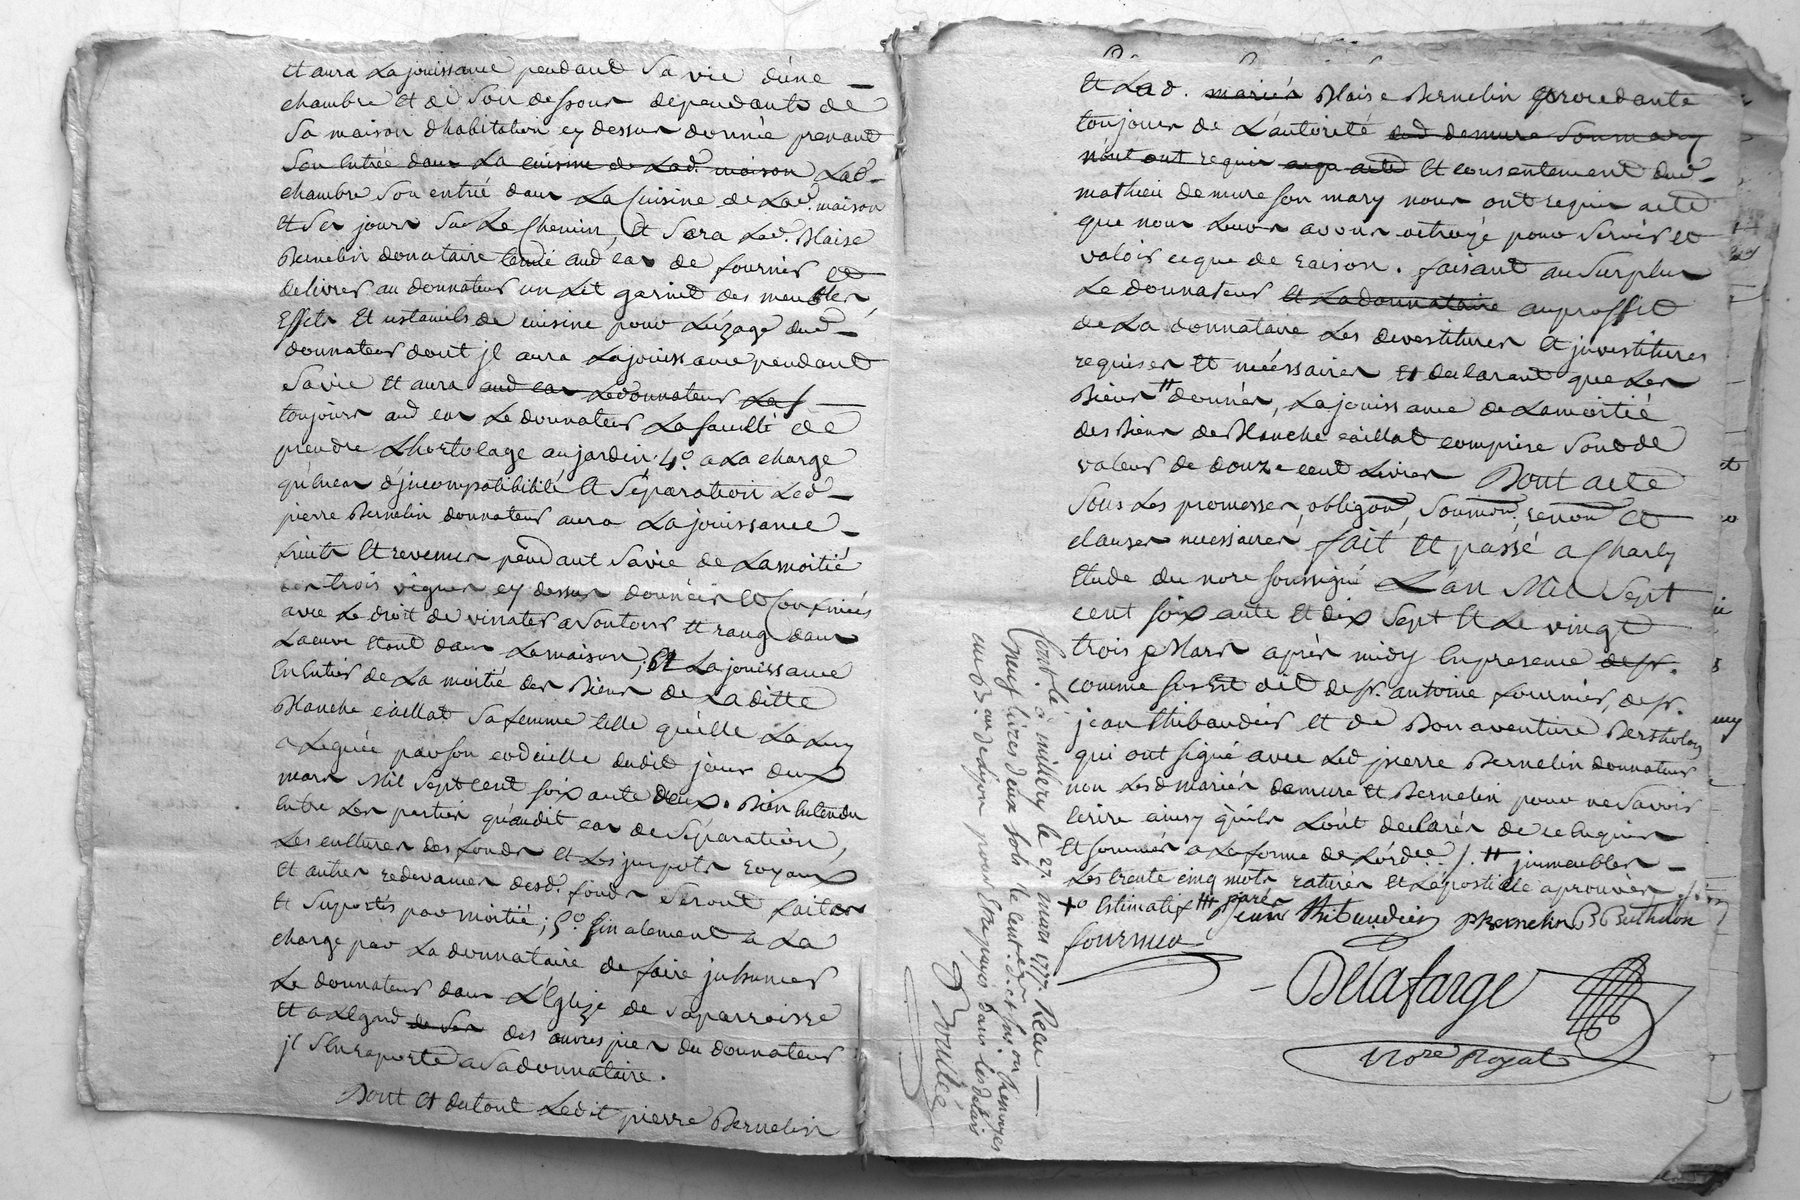 et aura La jouissance pendant Sa vie d'une
chambre et de Son dessous dependants de
Sa maison d'habitation cy dessus donnée prenant
Son Entrée dans La cuisine de Lad. maison Lad.
chambre Son entré dans La Cuisine de Lad. maison
et Ses jours Sur Le Chemin, Et Sera Lad. Blaise
Bernelin donataire tenüe aud cas de fournir et
delivrer au donnateur un Lit garnit des meubles
Effets Et ustancils de cuisine pour L'uzage dud.
donnateur dont jl aura La jouissance pendant
Sa vie Et aura aud cas Le donnateur La f
toujours aud cas Le donnateur La faculté de
prendre L'hortolage au jardin; 4°. a La charge
qu'en cas d'jncompatibilité Et Séparation Led.
pierre Bernelin donnateur aura La jouissance
fruits Et revenus pendant Sa vie de La moitié
des trois vignes cy dessus données Et Confinées
avec Le droit de vinater a Son tour Et rang dans
La cuve Etant dans La maison; Et La jouissance
En Entier de La moitié des Biens de La ditte
Blanche Caillat Sa femme telle qu'elle La Luy
a Leguée par Son codicille dudit jour deux
mars Mil Sept cent Soixante deux. Bien Entendu
Entre Les parties qu'audit cas de Séparation,
Les cultures des fonds Et Les jmpots royaux
Et autres redevances desd. fonds Seront faites
Et Suportés par moitié; 5°. finalement a La
charge par La donnataire de faire jnhumer
Le donnateur dans L'Eglize de Sa parroisse
Et a L'egard de Ses des œuvres pies du donnateur
jl S'En raporte a Sa donnataire.
Dont Et du tout Ledit pierre Bernelin
Et Lad. mariés Blaise Bernelin procedante
toujours de L'autorité dud demure Son mary
n'out ont requis acte Et consentement dud.
mathieu demure Son mary nous ont requis acte
que nous Leurs avons octroyé pour Servir Et
valoir ce que de raison. faisant au Surplus
Le donnateur Et La donnataire au proffit
de La donnataire Les devestitures Et jnvestitures
requises Et nécéssaires Et declarant que Les
Biens # donnés, La jouissance de La moitié
des Biens de Blanche Caillat comprise Sont de
valeur de douze cent Livres Dont acte
Sous Les promesses, obligaon, Soumon, renon Et
clauses necessaires, fait Et passé a Charly
Etude du nore Soussigné L'an Mil Sept
cent Soixante Et dix Sept Et Le vingt
trois Mars après midy En presence de Sr.
comme Sus Est dit de Sr. antoine fournier, de Sr.
jean thibaudier Et de Bonaventure Bertholon
qui ont Signé avec Led pierre Bernelin donnateur
non Lesd mariés demure Et Bernelin pour ne Savoir
Ecrire ainsy qu'ils L'ont declarés de ce Enquis
Et Sommés a La forme de L'ordce. /. # jmmeubles
Les trente cinq mots raturés Et L'apostille aprouvés
Estimatif
Jean thibaudier PBernelin B Bertholon
fournier
Delafarge
nore Royal
Cont.lé à millery le 27. mars 1777. Recu
neuf livres deux sols
au Bau de Lyon pour Etre payé dans les delais
Droullée